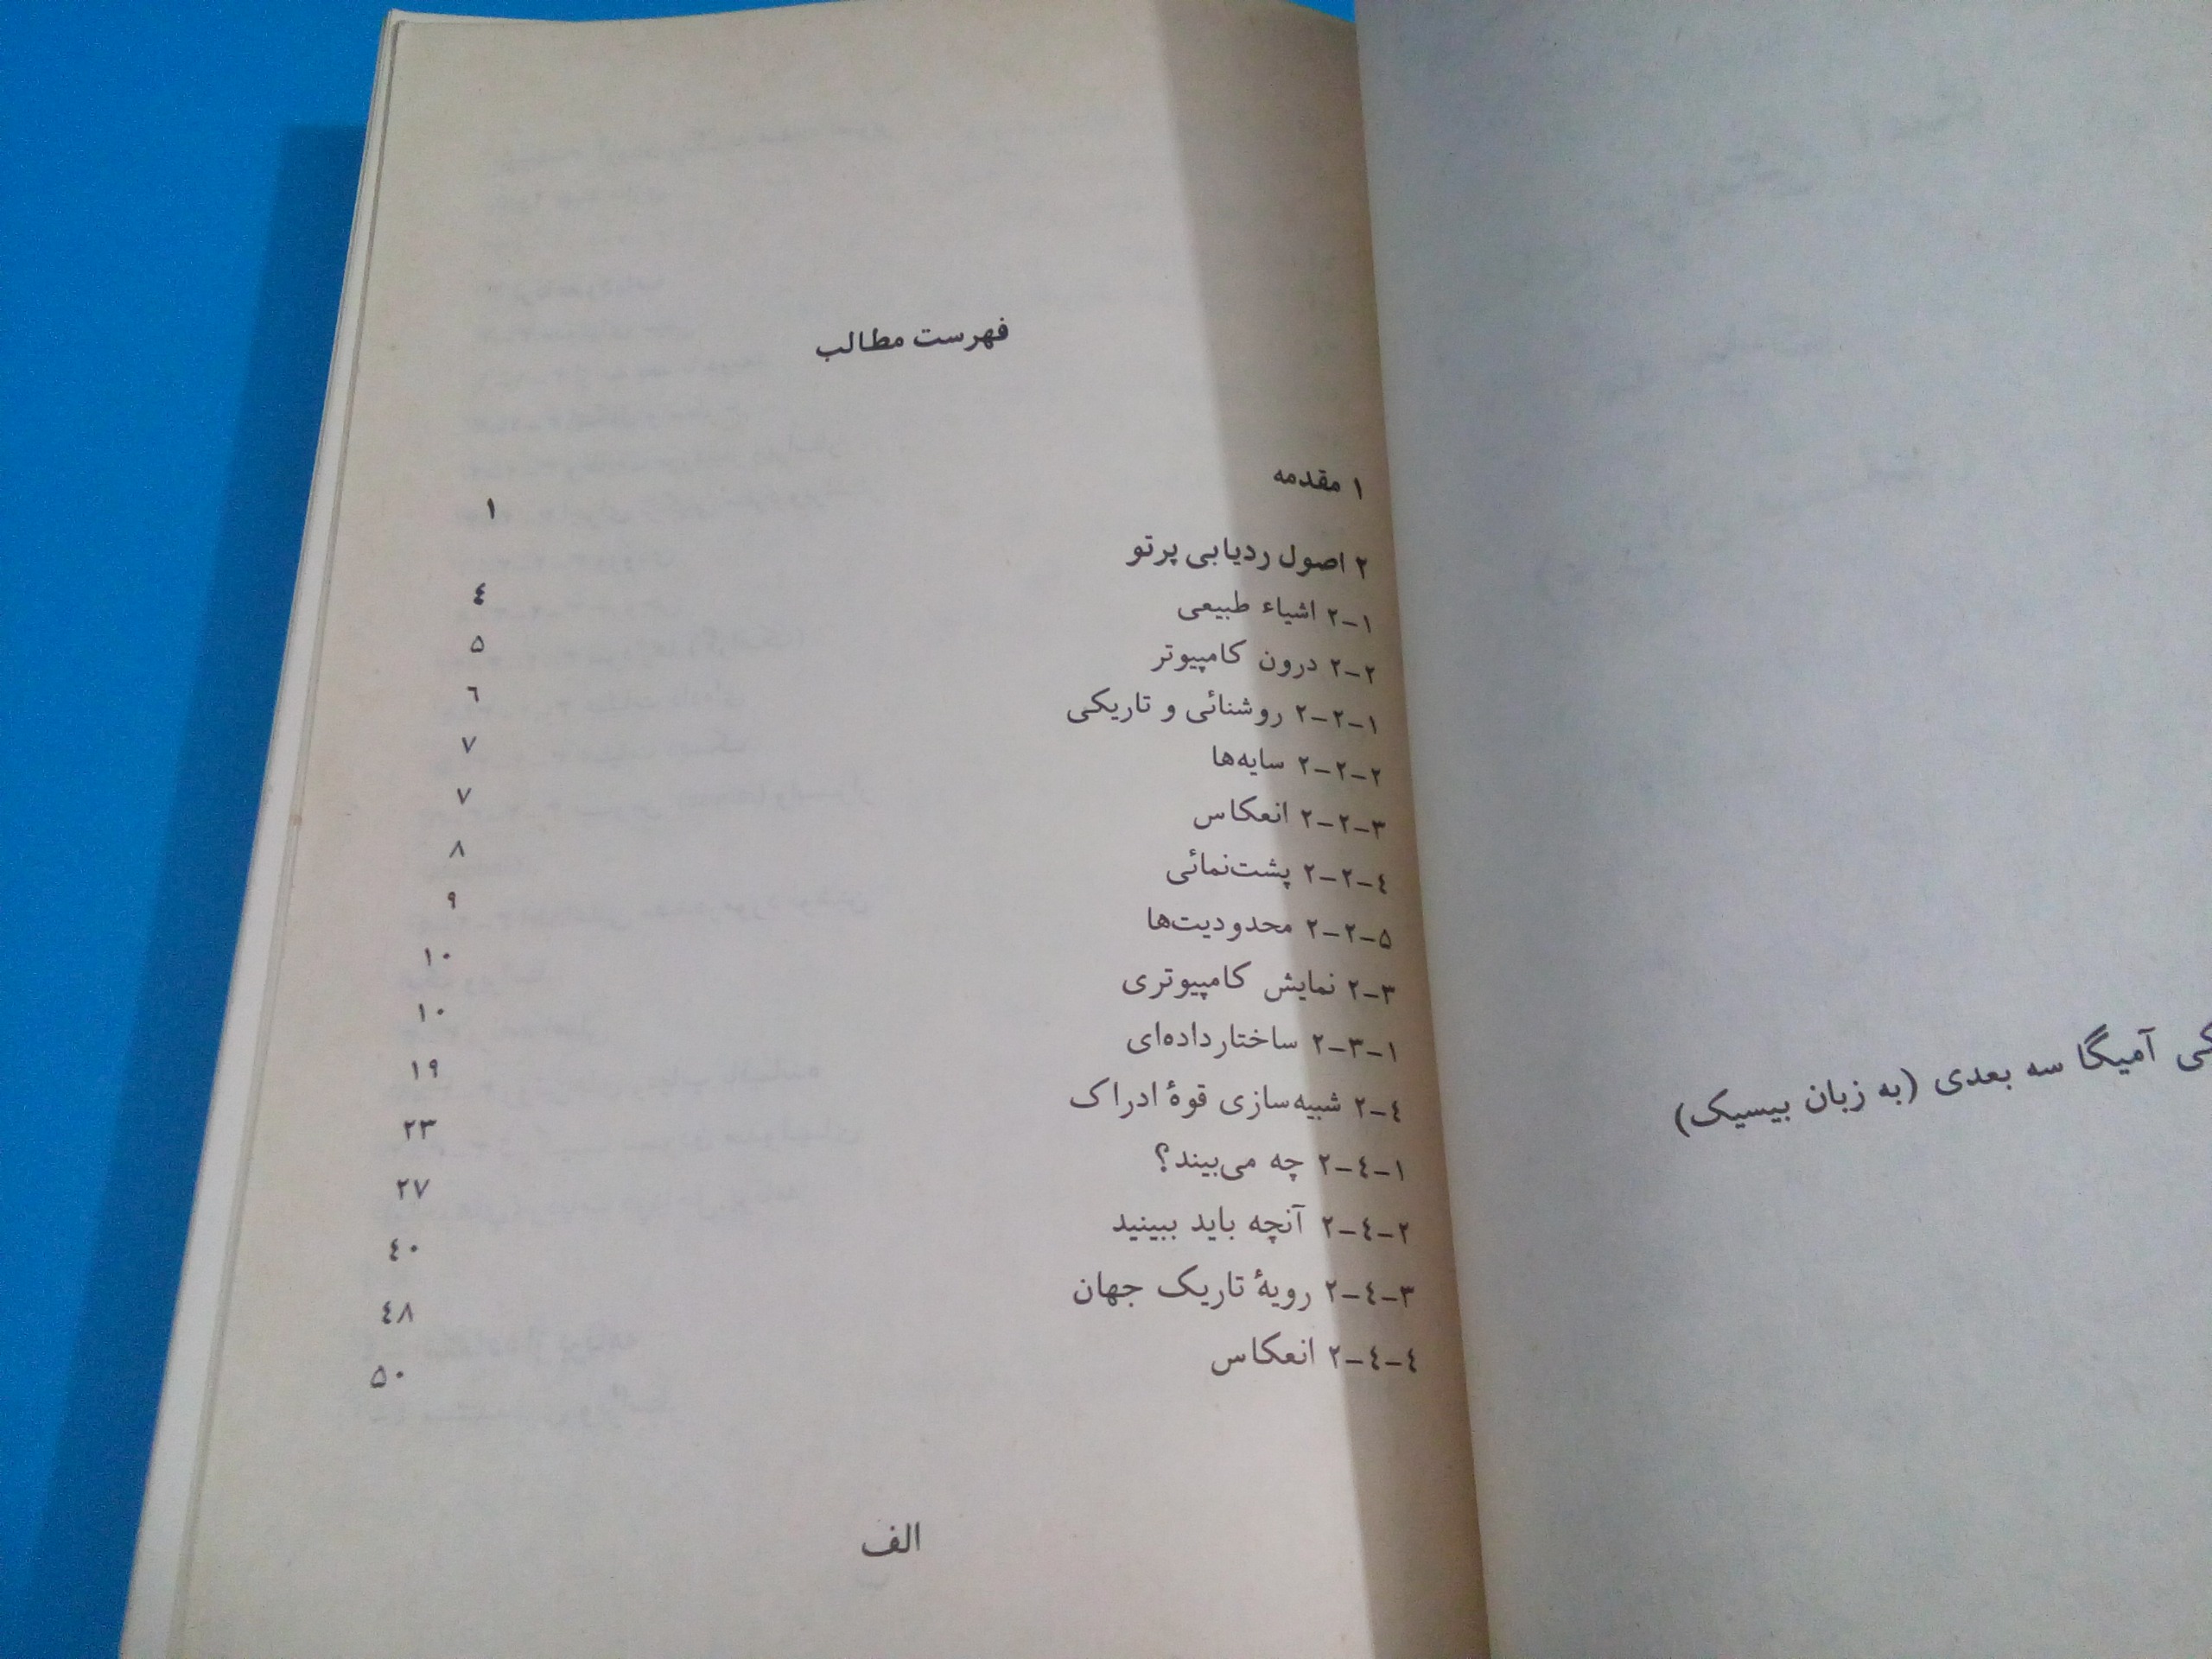 کی آمیگا سه بعدی (به زبان بیسیک)
فهرست مطالب
۱ مقدمه ۱
۲ اصول ردیابی پرتو ٤
۲-۱ اشیاء طبیعی ۵
۲-۲ درون کامپیوتر ٦
۲-۲-۱ روشنائی و تاریکی ۷
۲-۲-۲ سایه‌ها ۷
۲-۲-۳ انعکاس ۸
۲-۲-٤ پشت‌نمائی ۹
۲-۲-۵ محدودیت‌ها ۱۰
۲-۳ نمایش کامپیوتری ۱۰
۲-۳-۱ ساختار داده‌ای ۱۹
۲-٤ شبیه‌سازی قوهٔ ادراک ۲۳
۲-٤-۱ چه می‌بیند؟ ۲۷
۲-٤-۲ آنچه باید ببینید ٤۰
۲-٤-۳ رویهٔ تاریک جهان ٤۸
۲-٤-٤ انعکاس ۵۰
الف